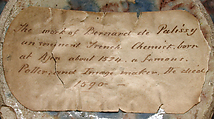 The work of Bernard de Palissy
an eminent French Chemist, born
at Agen about 1524, a famous
Potter, and Image maker. He died
1590 -